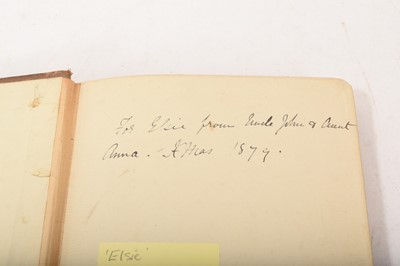 To Elsie from Uncle John & Aunt
Anna. XMas 1879.
'Elsie'